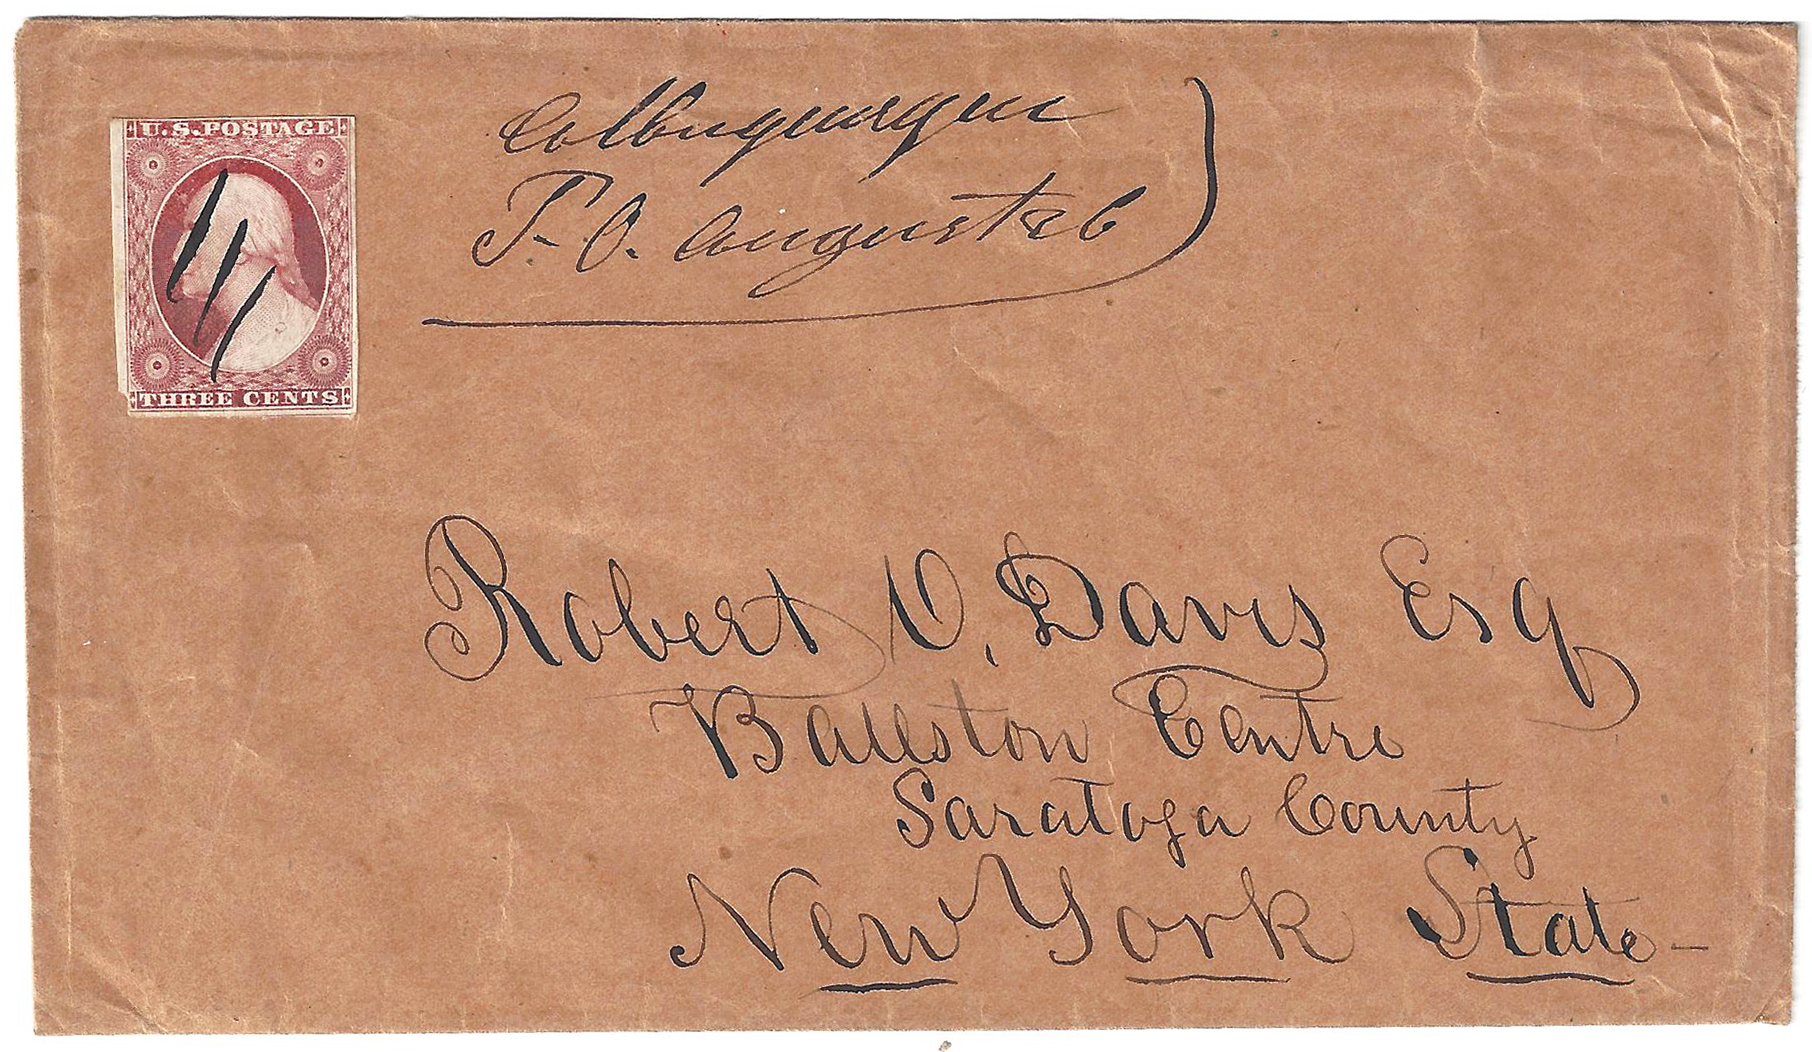 U.S. POSTAGE
THREE CENTS
Albuquerque
P. O. August 26
Robert O. Davis Esq
Ballston Centre
Saratoga County
New York State